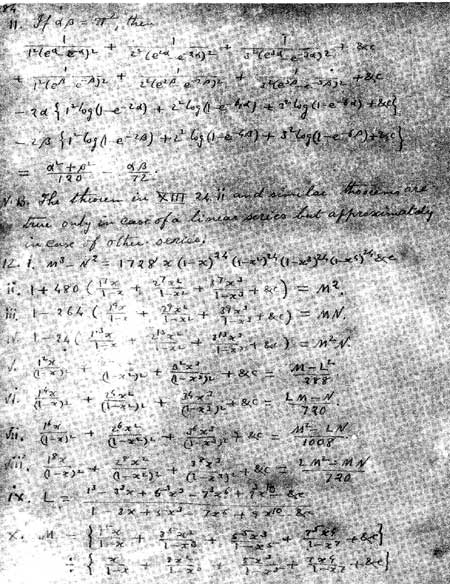 11. If αβ = π², then
1/(1²(e^α - e^-α)²) + 1/(2²(e^2α - e^-2α)²) + 1/(3²(e^3α - e^-3α)²) + &c
+ 1/(1²(e^β - e^-β)²) + 1/(2²(e^2β - e^-2β)²) + 1/(3²(e^3β - e^-3β)²) + &c
- 2α {1² log(1-e^-2α) + 2² log(1-e^-4α) + 3² log(1-e^-6α) + &c}
- 2β {1² log(1-e^-2β) + 2² log(1-e^-4β) + 3² log(1-e^-6β) + &c}
= (α² + β²)/120 - αβ/72.
N.B. The theorem in XIII 24 ii and similar theorems are
true only in case of a linear series but approximately
in case of other series.
12. i. M³ - N² = 1728 x (1-x)^24 (1-x²)^24 (1-x³)^24 (1-x⁴)^24 &c
ii. 1 + 480 (1⁷x/(1-x) + 2⁷x²/(1-x²) + 3⁷x³/(1-x³) + &c) = M².
iii. 1 - 264 (1⁹x/(1-x) + 2⁹x²/(1-x²) + 3⁹x³/(1-x³) + &c) = MN.
1 - 24 (1^13x/(1-x) + 2^13x²/(1-x²) + 3^13x³/(1-x³) + &c) = M²N.
v. 1²x/(1-x)² + /(1-x²)² + x³/(1-x³)² + &c = (M - L²)/288
vi. 1⁴x/(1-x)² + 2⁴x²/(1-x²)² + 3⁴x³/(1-x³)² + &c = (LM - N)/720.
vii. 1⁶x/(1-x)² + 2⁶x²/(1-x²)² + 3⁶x³/(1-x³)² + &c = (M² - LN)/1008.
viii. 1⁸x/(1-x)² + 2⁸x²/(1-x²)² + 3⁸x³/(1-x³)² + &c = (LM² - MN)/720
ix. L = (1³ - 3³x + 5³x³ - 7³x⁶ + 9³x^10 &c)/(1 - 3x + 5x³ - 7x⁶ + 9x^10 &c)
x. M = {1⁵x/(1-x) + 3⁵ + 5⁵x³ + 7⁵x⁴ + &c}
÷ {x/(1-x) + + + + &c}